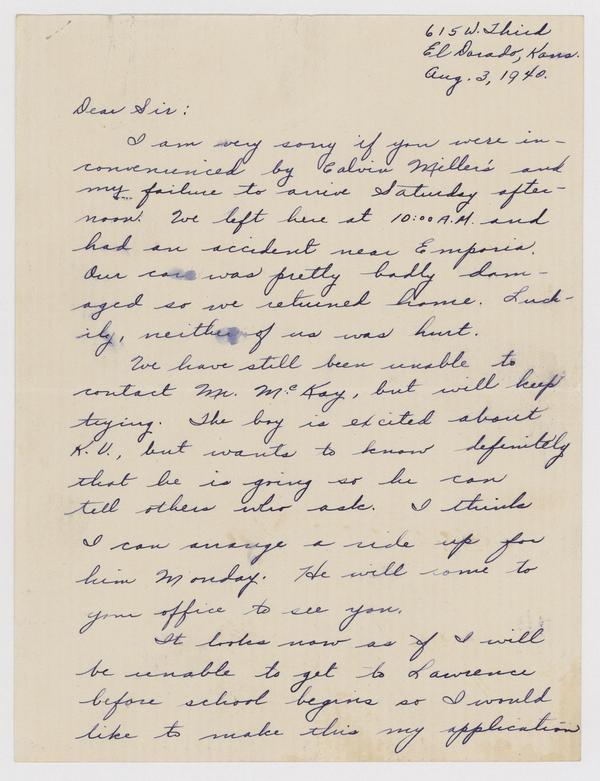 615 W. Third
El Dorado, Kans.
Aug. 3, 1940.
Dear Sir:
I am very sorry if you were in-
convenienced by Calvin Miller's and
my failure to arrive Saturday after-
noon. We left here at 10:00 A.M. and
had an accident near Emporia.
Our car was pretty badly dam-
aged so we returned home. Luck-
ily, neither of us was hurt.
We have still been unable to
contact Mr. McKay, but will keep
trying. The boy is excited about
K.U., but wants to know definitely
that he is going so he can
tell others who ask. I think
I can arrange a ride up for
him Monday. He will come to
your office to see you.
It looks now as if I will
be unable to get to Lawrence
before school begins so I would
like to make this my application